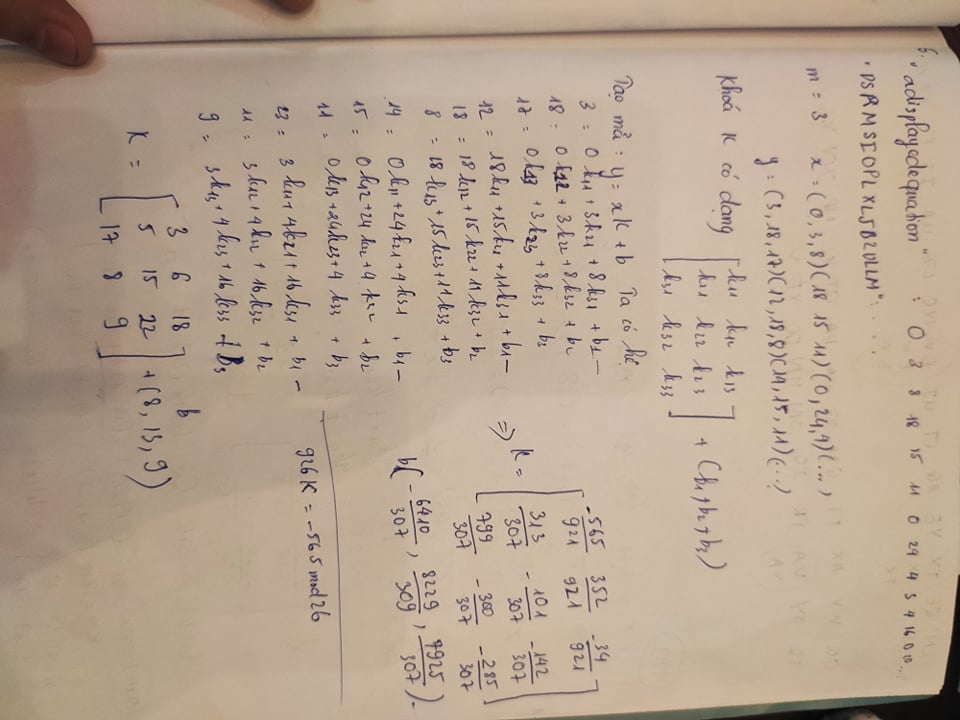 6. "adisplayedequation" : 0 3 8 18 15 11 0 24 4 3 4 16 0 20...
• "DSRMSIOPLXLJBZULLM" : . . .
m = 3 x = (0,3,8)(18 15 11)(0,24,4)(...)
y = (3,18,17)(12,18,8)(14,15,11)(...)
Khoá K có dạng [k11 k12 k13
k21 k22 k23
k31 k32 k33] + (b1, b2, b3)
Tạo mã : y = xK + b Ta có hệ
3 = 0k11 + 3k21 + 8k31 + b1 —
18 = 0k12 + 3k22 + 8k32 + b2
17 = 0k13 + 3k23 + 8k33 + b3
12 = 18k11 + 15k21 + 11k31 + b1 —
18 = 18k12 + 15k22 + 11k32 + b2
8 = 18k13 + 15k23 + 11k33 + b3
14 = 0k11 + 24k21 + 4k31 + b1 —
15 = 0k12 + 24k22 + 4k32 + b2
11 = 0k13 + 24k23 + 4k33 + b3
23 = 3k11 + 4k21 + 16k31 + b1 —
11 = 3k12 + 4k22 + 16k32 + b2
9 = 3k13 + 4k23 + 16k33 + b3
K = [3 6 18
5 15 22
17 8 9] + b(8, 13, 9)
⇒ K = [-565/921 352/921 -34/921
313/307 -101/307 -142/307
799/307 -300/307 -285/307]
b(-6410/307, 8229/309, 7925/307).
926K = -565 mod 26